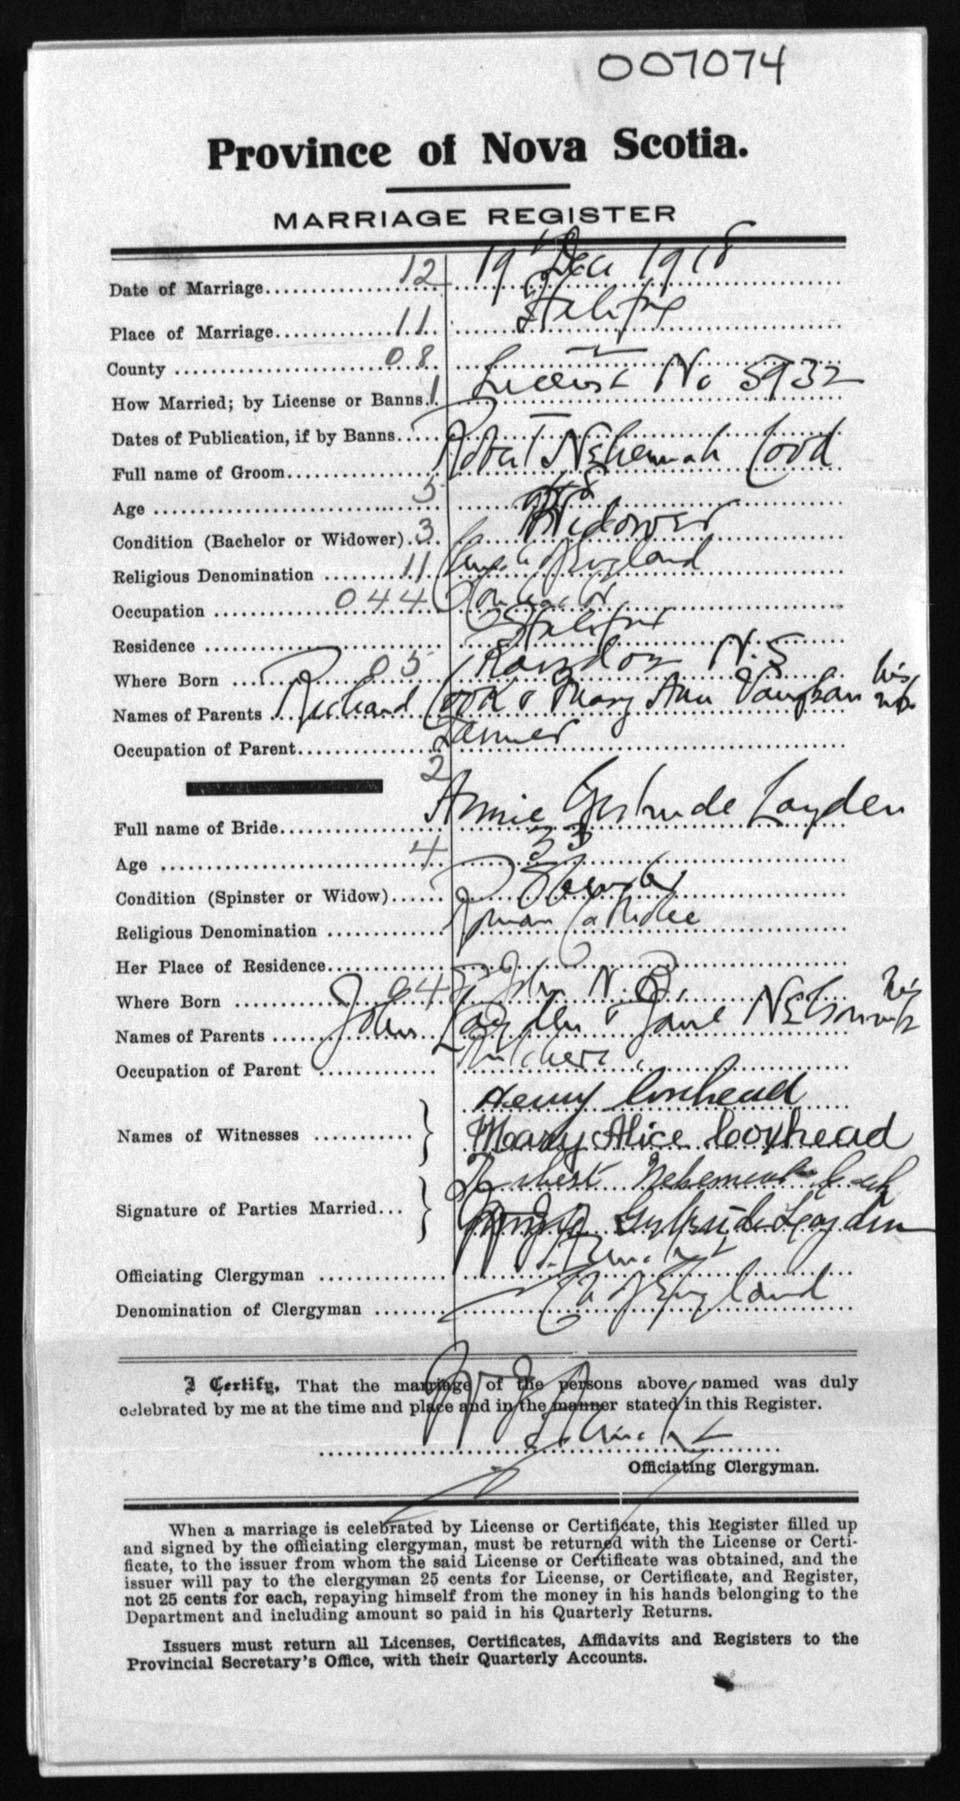 007074
Province of Nova Scotia.
MARRIAGE REGISTER
Date of Marriage 12 19 Dec 1918
Place of Marriage 11 Halifax
County 08
How Married; by License or Banns 1 License No 5932
Dates of Publication, if by Banns
Full name of Groom Nehemiah Cook
Age 5 48
Condition (Bachelor or Widower) 3 Widower
Religious Denomination 11 Church of England
Occupation 044
Residence Halifax
Where Born 05 Rawdon N.S
Names of Parents Richard Cook & Mary Ann Vaughan his wife
Occupation of Parent Farmer
2
Full name of Bride Annie Gertrude Layden
Age 4 33
Condition (Spinster or Widow)
Religious Denomination Roman Catholic
Her Place of Residence
Where Born 04 St John N.B.
Names of Parents John Layden & Jane Nelson his wife
Occupation of Parent
Names of Witnesses Henry Coxhead
Mary Alice Coxhead
Signature of Parties Married Nehemiah Cook
Gertrude Layden
Officiating Clergyman
Denomination of Clergyman Ch of England
I Certify, That the marriage of the persons above named was duly
celebrated by me at the time and place and in the manner stated in this Register.
Officiating Clergyman.
When a marriage is celebrated by License or Certificate, this Register filled up
and signed by the officiating clergyman, must be returned with the License or Certi-
ficate, to the issuer from whom the said License or Certificate was obtained, and the
issuer will pay to the clergyman 25 cents for License, or Certificate, and Register,
not 25 cents for each, repaying himself from the money in his hands belonging to the
Department and including amount so paid in his Quarterly Returns.
Issuers must return all Licenses, Certificates, Affidavits and Registers to the
Provincial Secretary's Office, with their Quarterly Accounts.